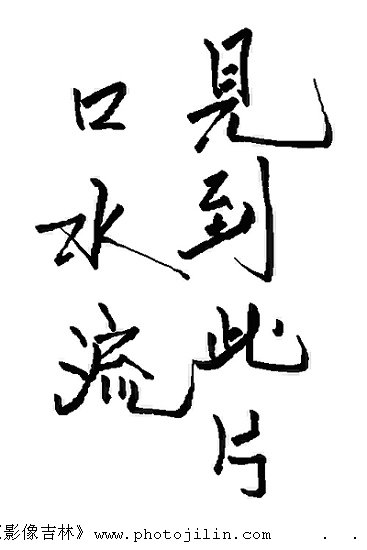 見到此片
口水流
影像吉林》www.photojilin.com . .